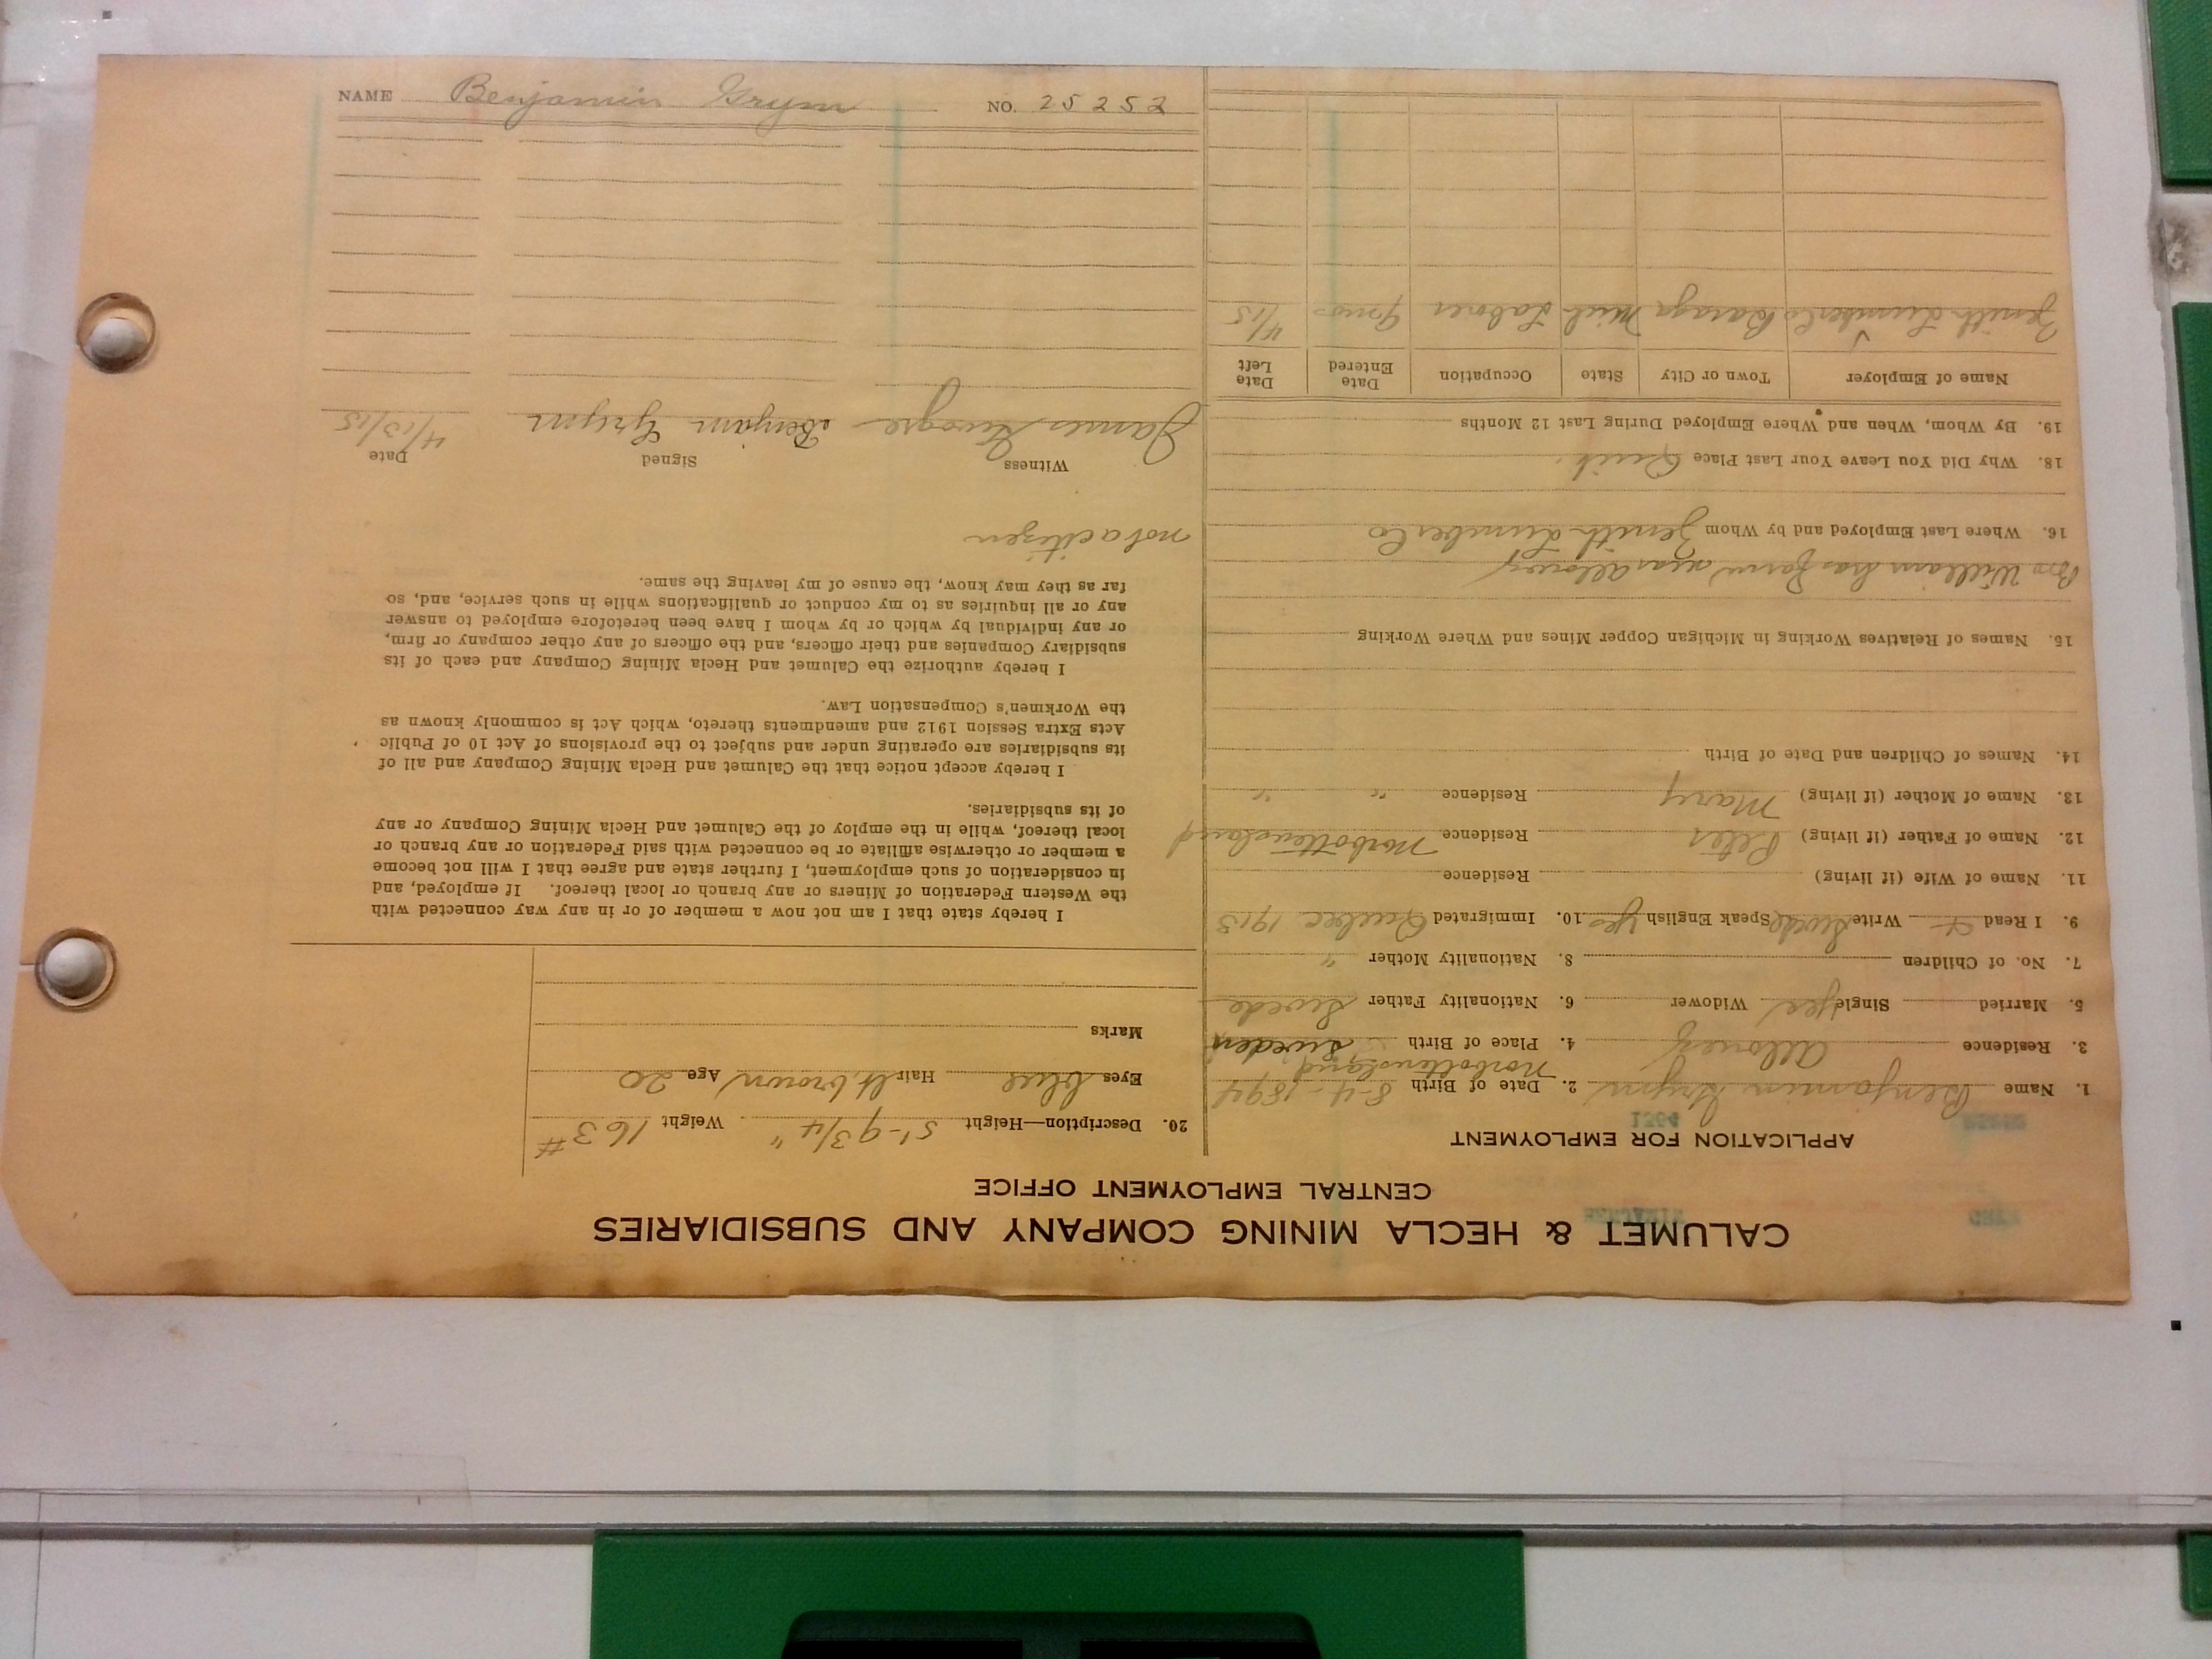 CALUMET & HECLA MINING COMPANY AND SUBSIDIARIES
CENTRAL EMPLOYMENT OFFICE
APPLICATION FOR EMPLOYMENT
1. Name Benjamin Grym 2. Date of Birth 8-4-1894
Norbottensland
3. Residence Allouez 4. Place of Birth Sweden
5. Married Single yes Widower 6. Nationality Father Swede
7. No. of Children 8. Nationality Mother "
9. I Read & Write Swede Speak English yes 10. Immigrated Quebec 1913
11. Name of Wife (if living) Residence
12. Name of Father (if living) Peter Residence Norbottensland
13. Name of Mother (if living) Mary Residence " "
14. Names of Children and Date of Birth
15. Names of Relatives Working in Michigan Copper Mines and Where Working
Bro William has farm near Allouez
16. Where Last Employed and by Whom Zenith Lumber Co
18. Why Did You Leave Your Last Place Quit.
19. By Whom, When and Where Employed During Last 12 Months
Name of Employer Town or City State Occupation Date Entered Date Left
Zenith Lumber Co Baraga Mich Laborer 9 mos 4/15
20. Description—Height 5'-9 3/4" Weight 163#
Eyes blue Hair lt. brown Age 20
Marks
I hereby state that I am not now a member of or in any way connected with
the Western Federation of Miners or any branch or local thereof. If employed, and
in consideration of such employment, I further state and agree that I will not become
a member or otherwise affiliate or be connected with said Federation or any branch or
local thereof, while in the employ of the Calumet and Hecla Mining Company or any
of its subsidiaries.
I hereby accept notice that the Calumet and Hecla Mining Company and all of
its subsidiaries are operating under and subject to the provisions of Act 10 of Public
Acts Extra Session 1912 and amendments thereto, which Act is commonly known as
the Workmen's Compensation Law.
I hereby authorize the Calumet and Hecla Mining Company and each of its
subsidiary Companies and their officers, and the officers of any other company or firm,
or any individual by which or by whom I have been heretofore employed to answer
any or all inquiries as to my conduct or qualifications while in such service, and, so
far as they may know, the cause of my leaving the same.
not a citizen
Witness Signed Date
James Benjam Grym 4/13/15
NAME Benjamin Grym NO. 25252